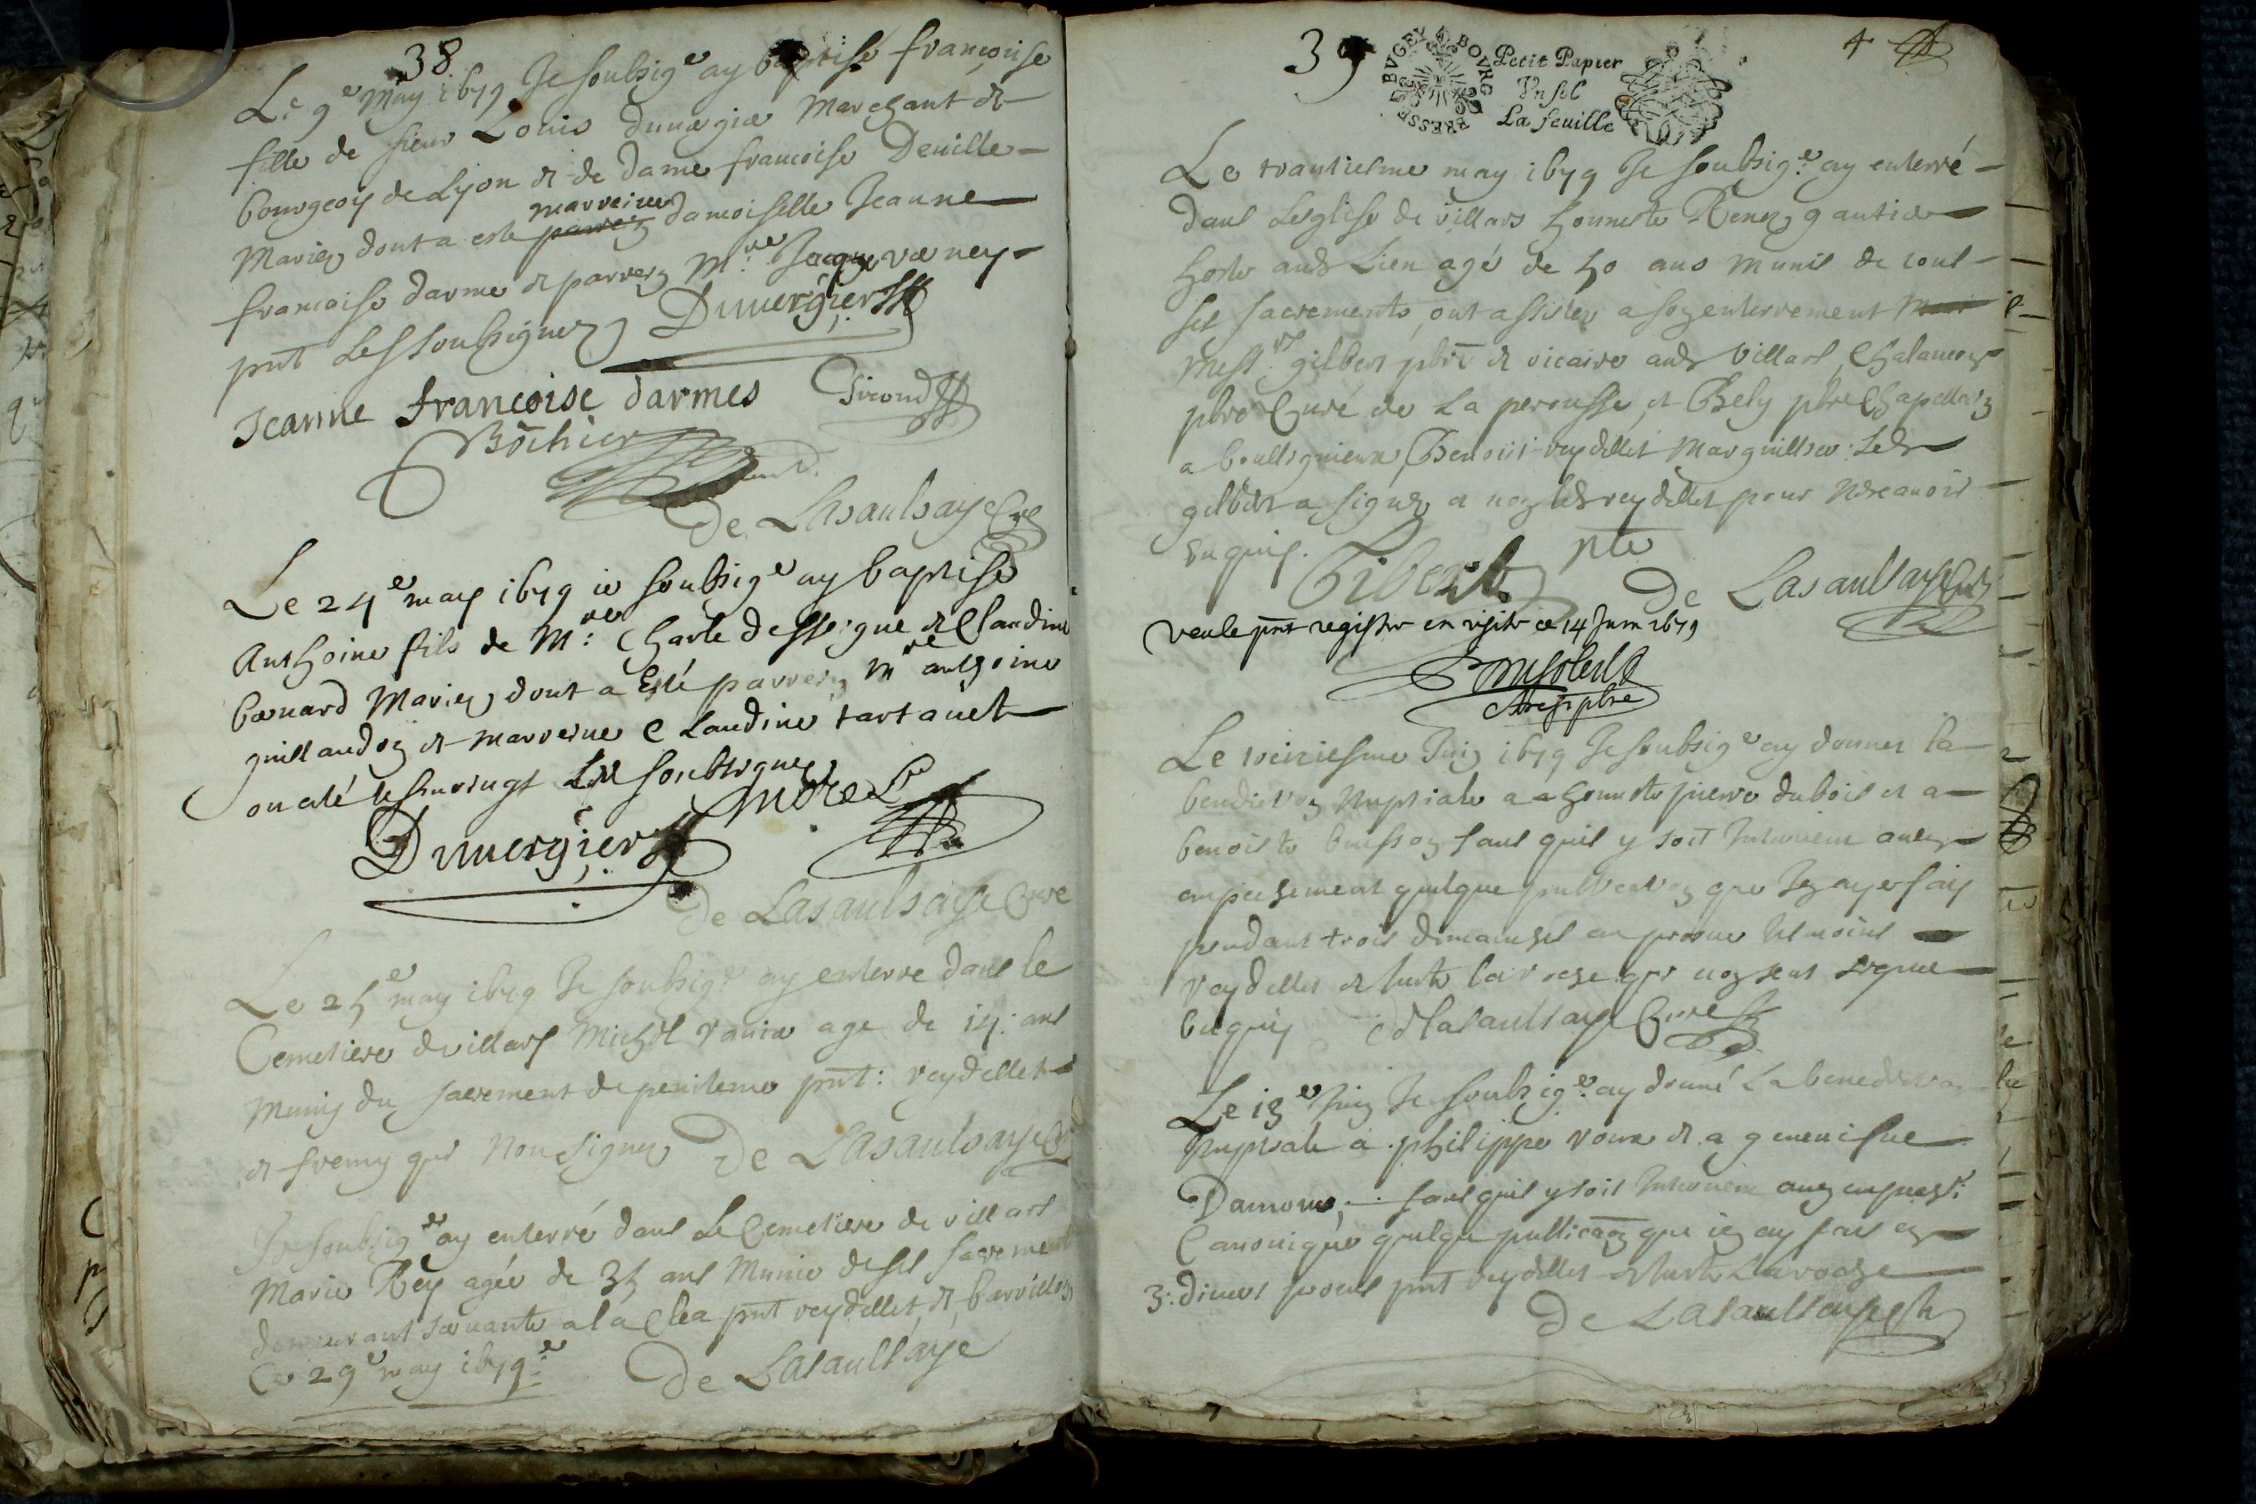 38
Le 9e May 1679 Je soubsige ay baptisé francoise
fille de sieur Louis Duuergier Marchant et
bourgeois de Lyon et de dame francoise Deuille
Mariez dont a este marreine damoiselle Jeanne
francoise darme et parrein Mre Jacque verney
pnt Les soubsignez Duuergier
Jeanne francoise darmes Giroud
Bochier
De Lasaulsaye Cure
Le 24e may 1679 ie soubsige ay baptise
Anthoine fils de Mre Charle et Claudine
bernard Mariez dont a Esté parrein Mre anthoine
guillaudon et marreine Claudine tartauet
on esté Les soubsignez
Duuergier Morel
De Lasaulsaye Cure
Le 25e may 1679 Je soubsige ay enterre dans le
Cemetiere de villars Michel age de 14: ans
Muny du sacrement de penitence pnt: reydellet
et fremy qui Non signez De Lasaulsaye Cu
Je soubsige ay enterré dans Le Cemetiere de villars
Marie Rey agée de 35 ans Munie de ses sacrement
demeurant seruante a la Clea pnt reydellet, et
Ce 29e may 1679e De Lasaulsaye
39
BOURG BUGEY BRESSE
Petit Papier
Un sol
La feuille
4
Le trantiesme may 1679 Je soubsige ay enterré
dans Lesglise de villars honneste Rene gantier
hoste aud Lieu agé de 50 ans Munis de tous
ses sacrements, ont assistez a son enterrement
Messrs gilbert pbre et vicaire aud villars, Chalancon
pbre Curé de La perousse, et Bely pbre Chapellain
a boullignieux, Benoist reydellet Marguillier: Led
gilbert a signez et non led reydellet pour Ne scauoir
enquis. Gibert pbre De Lasaulsaye Cure
veu le pnt registre en visite ce 14 Juin 1679
Archiprbre
Le Juin 1679 Je soubsige ay donner la
benediction Nuptiale a honneste pierre dubois et a
benoiste buisson sans quil y soit Interuenu aucun
empechement quelque publication que Jen aye fait
pendant trois dimanches au prosne tesmoins
reydellet et la roche qui non seut signe
enquis DeLasaulsaye Cure
Le 18e Juin Je soubsige ay donné La benediction
Nuptiale a philippe et a geneuiesue
Damome, sans quil y soit Interuenu aucun empesche:
Canonique quelque publication que ien ay fait en
3: diuers prosnes pnt reydellet et Laroche
De Lasaulsaye